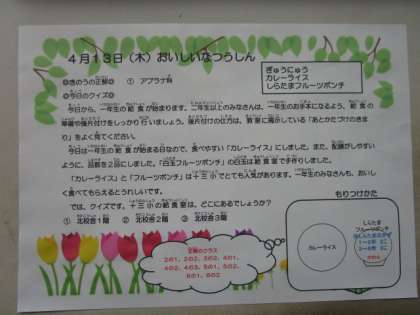 4月13日(木)おいしいなつうしん
ぎゅうにゅう
カレーライス
しらたまフルーツポンチ
◎きのうの正解◎ ① アブラナ科
◎今日のクイズ◎
今日から、一年生の給食が始まります。二年生以上のみなさんは、一年生のお手本になるよう、給食の
準備や後片付けをしっかり行いましょう。後片付けの仕方は、教室に掲示している「あとかたづけのきま
り」をよく見てください。
今日は一年生の給食が始まる日なので、食べやすい「カレーライス」にしました。また、配膳がしやすい
ように、品数を2品にしました。「白玉フルーツポンチ」の白玉は給食室で手作りしました。
「カレーライス」と「フルーツポンチ」は十三小でとても人気があります。一年生のみなさんも、おいし
く食べてもらえるとうれしいです。
では、クイズです。十三小の給食室は、どこにあるでしょうか?
① 北校舎1階 ② 北校舎2階 ③ 北校舎3階
もりつけかた
カレーライス
しらたま
フルーツポンチ
正解のクラス